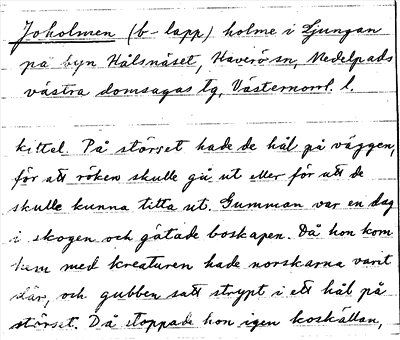 Joholmen (b- lapp) holme i Ljungan
på byn Hålsnäset, Haverö sn, Medelpads
västra domsagas tg, Västernorrl. l.
kittel. På störset hade de hål på väggen,
för att röken skulle gå ut eller för att de
skulle kunna titta ut. Gumman var en dag
i skogen och gätade boskapen. Då hon kom
hem med kreaturen hade norskarna varit
där, och gubben satt strypt i ett hål på
störset. Då stoppade hon igen koskällan,